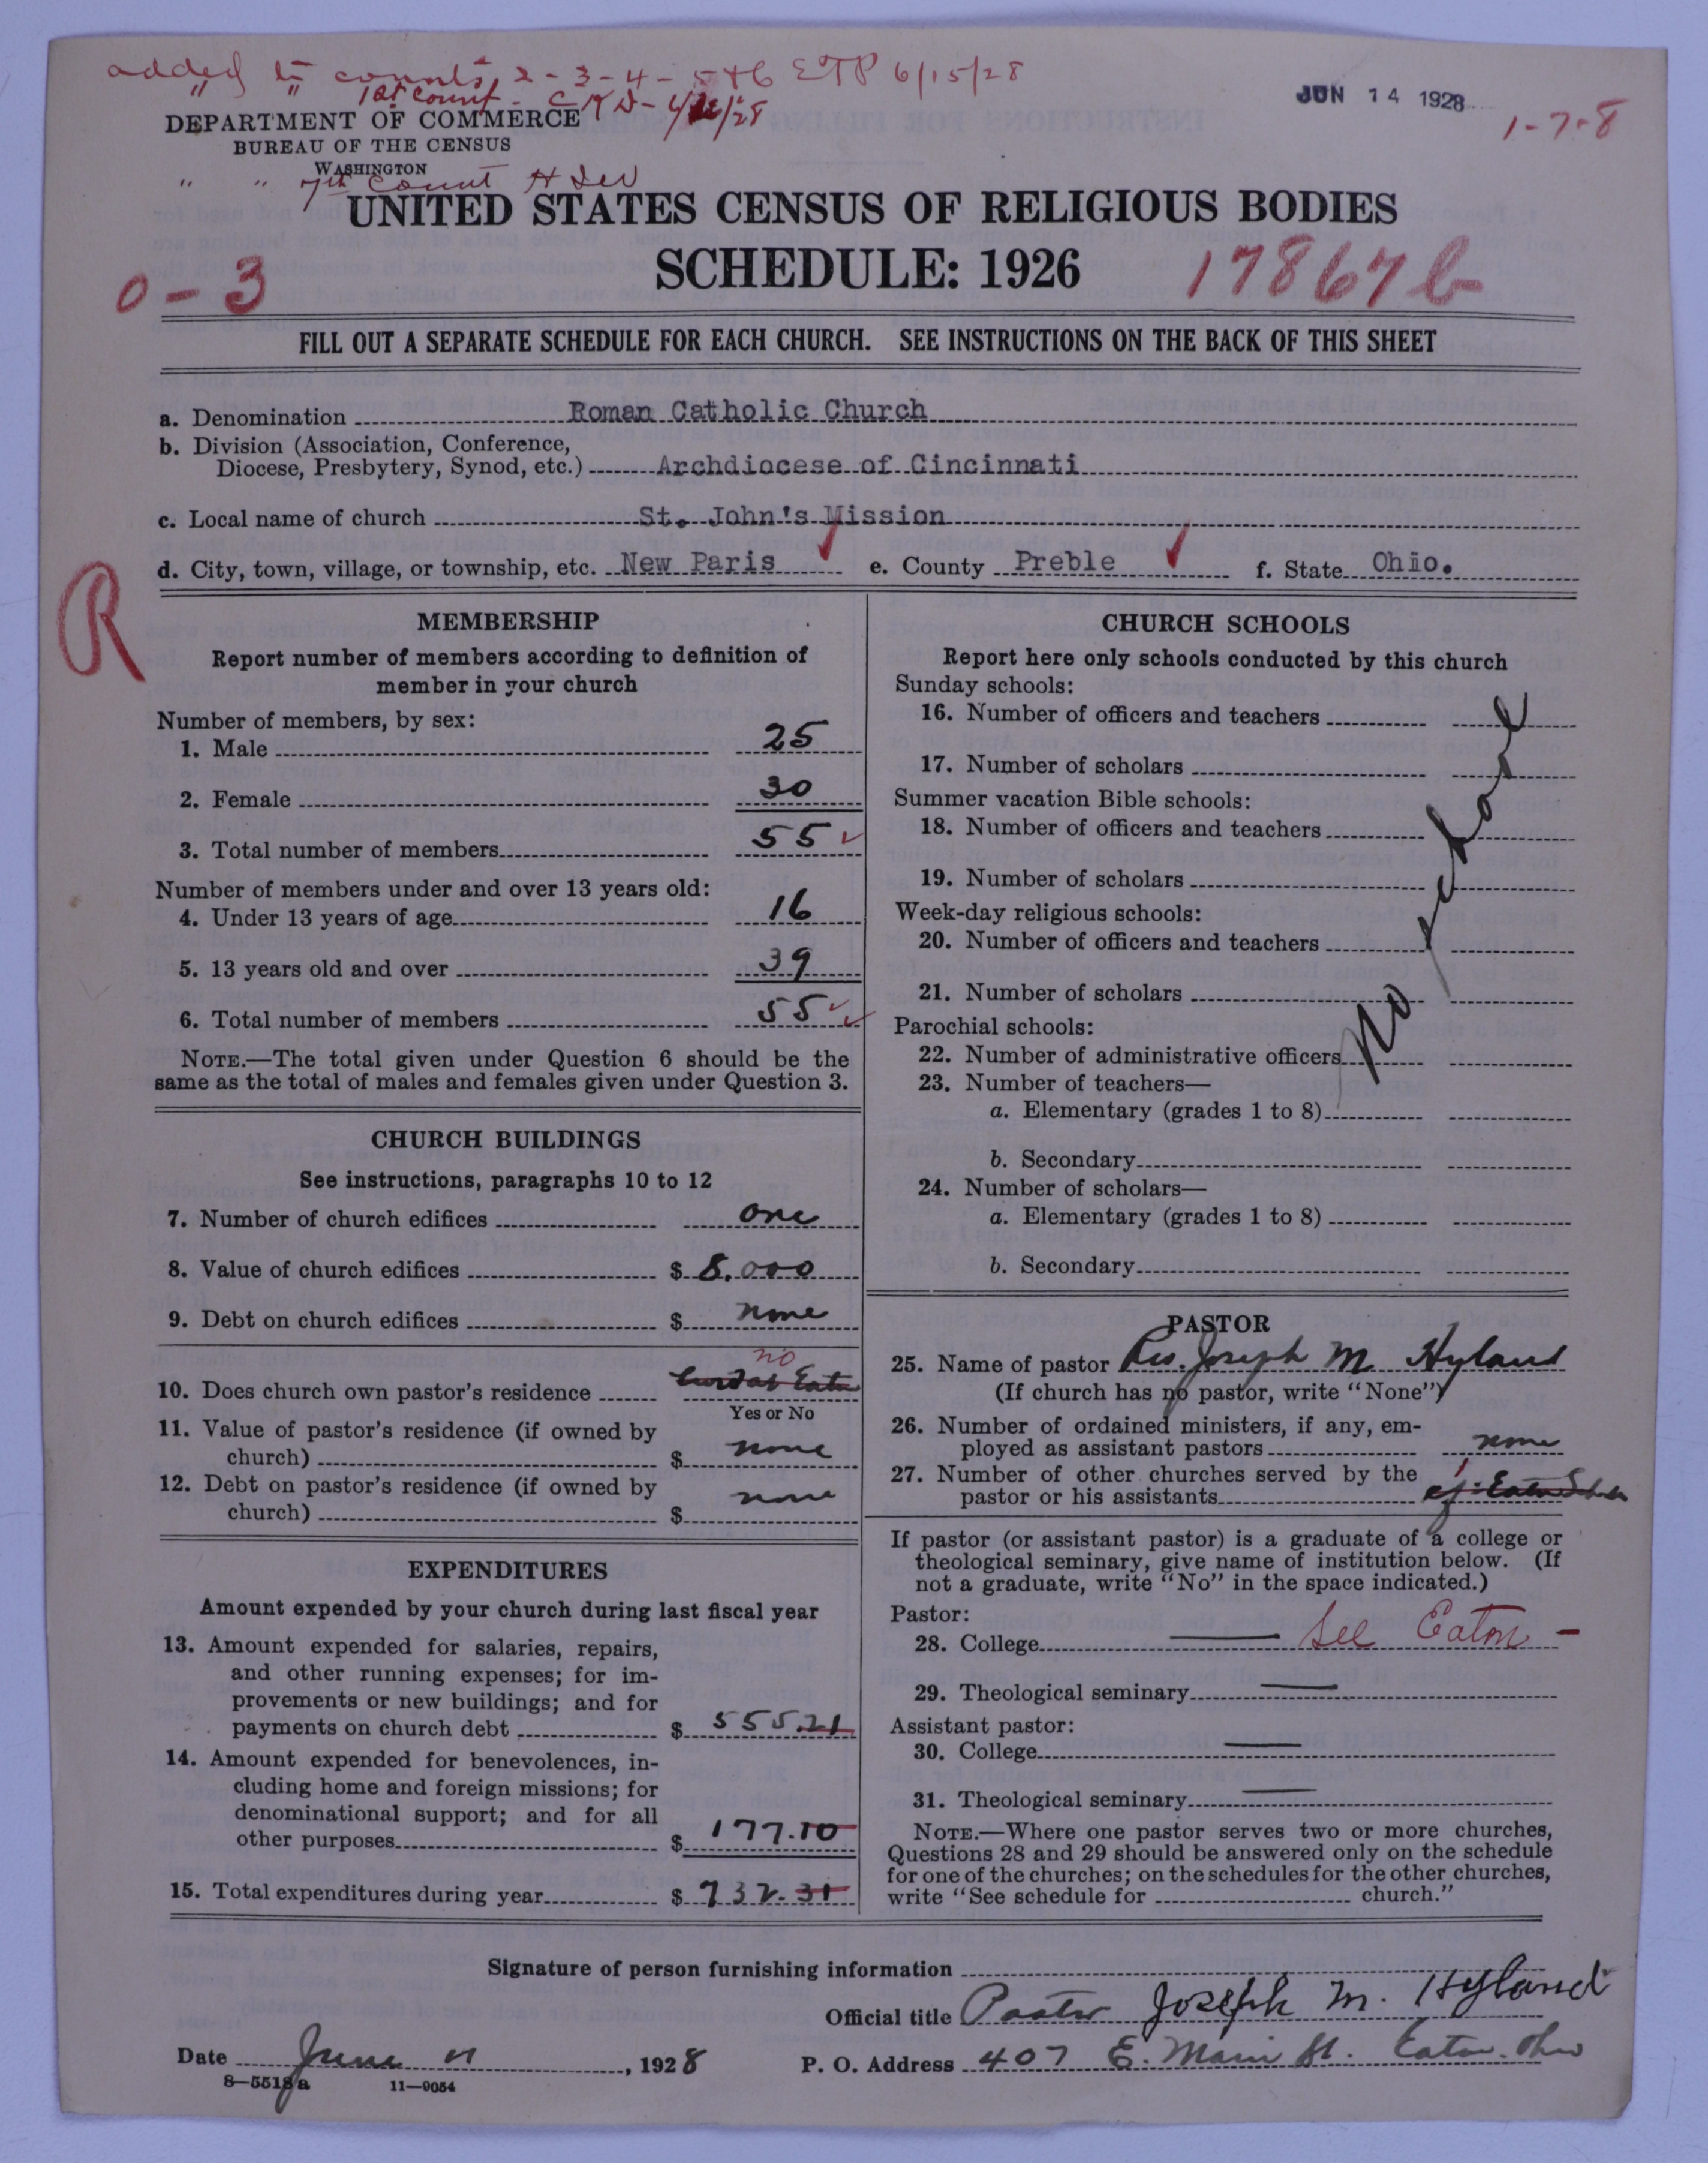 added to counts 2-3-4-5+6 ETP 6/15/28
" " 1st count - CKD-
JUN 14 1928
1-7-8
DEPARTMENT OF COMMERCE
BUREAU OF THE CENSUS
WASHINGTON
" " 7th count
UNITED STATES CENSUS OF RELIGIOUS BODIES
SCHEDULE: 1926
0-3
17867b
FILL OUT A SEPARATE SCHEDULE FOR EACH CHURCH. SEE INSTRUCTIONS ON THE BACK OF THIS SHEET
a. Denomination Roman Catholic Church
b. Division (Association, Conference,
Diocese, Presbytery, Synod, etc.) Archdiocese of Cincinnati
c. Local name of church St. John's Mission
d. City, town, village, or township, etc. New Paris e. County Preble f. State Ohio.
R
MEMBERSHIP
Report number of members according to definition of
member in your church
Number of members, by sex:
1. Male 25
2. Female 30
3. Total number of members 55
Number of members under and over 13 years old:
4. Under 13 years of age 16
5. 13 years old and over 39
6. Total number of members 55
NOTE.—The total given under Question 6 should be the
same as the total of males and females given under Question 3.
CHURCH BUILDINGS
See instructions, paragraphs 10 to 12
7. Number of church edifices one
8. Value of church edifices $ 8.000
9. Debt on church edifices $ none
10. Does church own pastor's residence no
Yes or No
11. Value of pastor's residence (if owned by
church) $ none
12. Debt on pastor's residence (if owned by
church) $ none
EXPENDITURES
Amount expended by your church during last fiscal year
13. Amount expended for salaries, repairs,
and other running expenses; for im-
provements or new buildings; and for
payments on church debt $ 555.21
14. Amount expended for benevolences, in-
cluding home and foreign missions; for
denominational support; and for all
other purposes $ 177.10
15. Total expenditures during year $ 732.31
CHURCH SCHOOLS
Report here only schools conducted by this church
Sunday schools:
16. Number of officers and teachers
17. Number of scholars
Summer vacation Bible schools:
18. Number of officers and teachers
19. Number of scholars
Week-day religious schools:
20. Number of officers and teachers
21. Number of scholars
Parochial schools:
22. Number of administrative officers
23. Number of teachers—
a. Elementary (grades 1 to 8)
b. Secondary
24. Number of scholars—
a. Elementary (grades 1 to 8)
b. Secondary
No school
PASTOR
25. Name of pastor Rev. Joseph M. Hyland
(If church has no pastor, write "None")
26. Number of ordained ministers, if any, em-
ployed as assistant pastors none
27. Number of other churches served by the
pastor or his assistants 1
If pastor (or assistant pastor) is a graduate of a college or
theological seminary, give name of institution below. (If
not a graduate, write "No" in the space indicated.)
Pastor:
28. College — See Eaton —
29. Theological seminary —
Assistant pastor:
30. College —
31. Theological seminary —
NOTE.—Where one pastor serves two or more churches,
Questions 28 and 29 should be answered only on the schedule
for one of the churches; on the schedules for the other churches,
write "See schedule for church."
Signature of person furnishing information
Official title Pastor Joseph M. Hyland
Date June 11, 1928 P. O. Address 407 E. Main St. Eaton. Ohio
8—5518a 11—9054